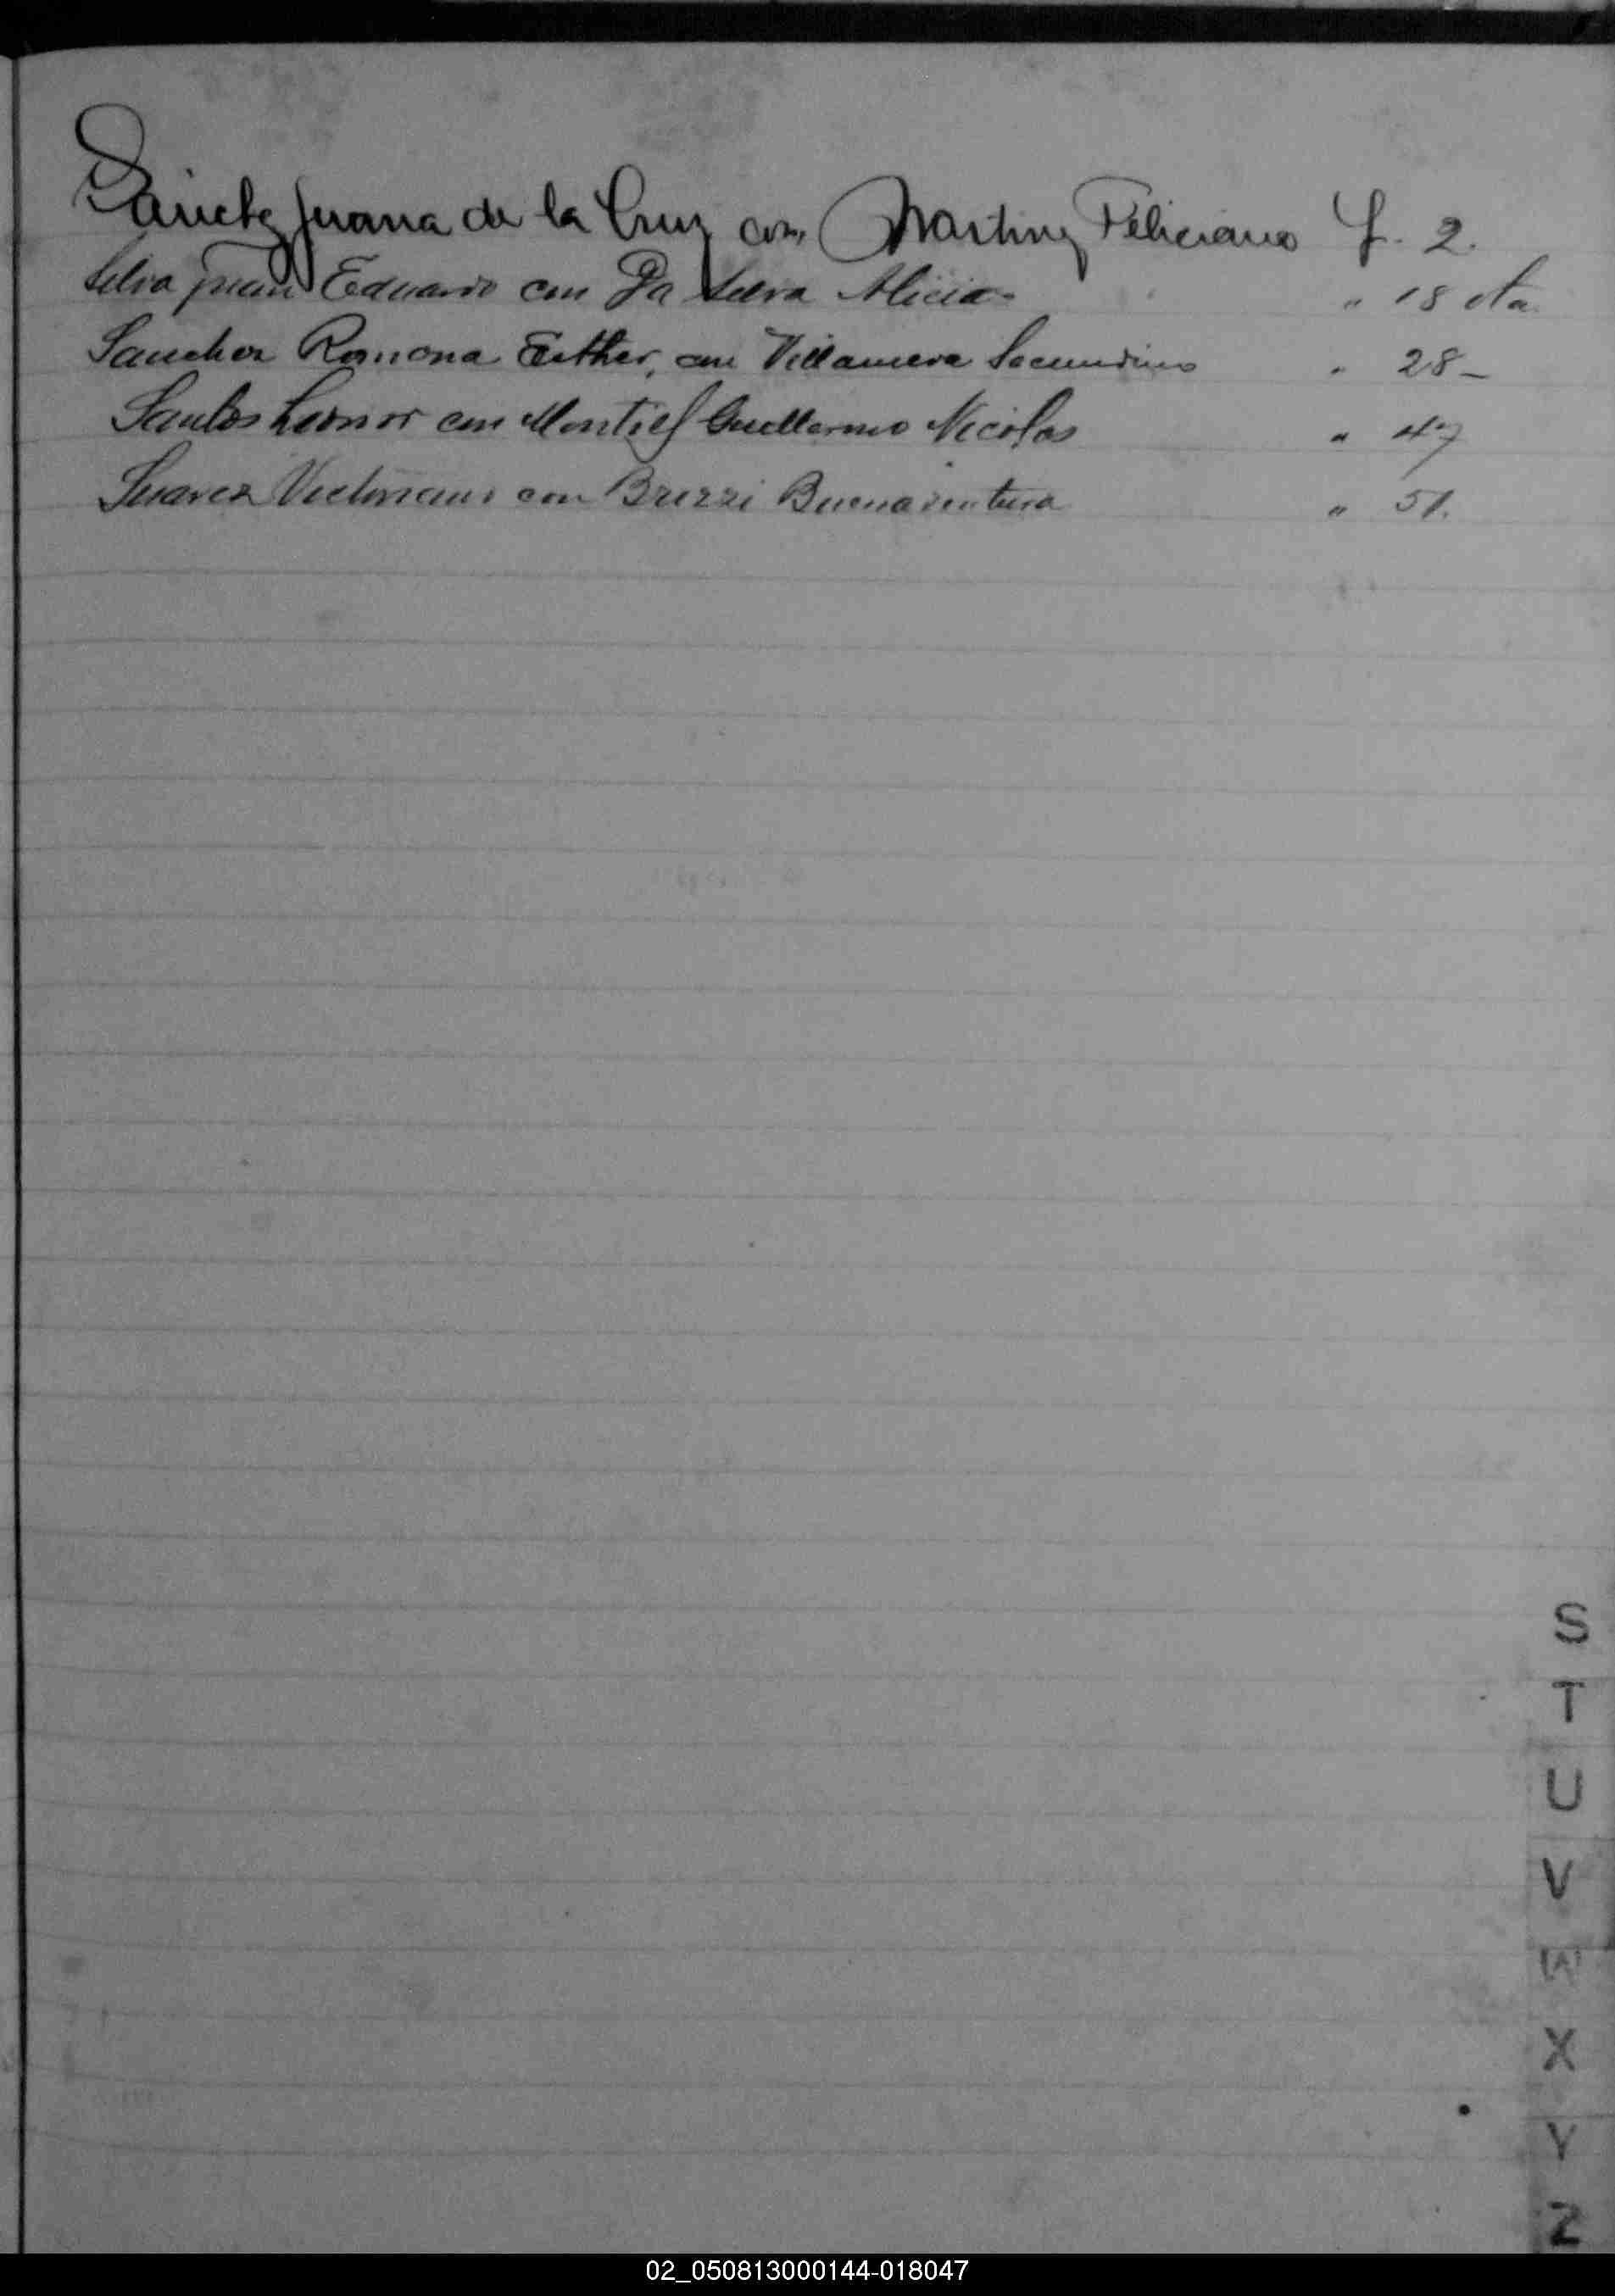 Sanchez Juana de la Cruz con Martinez Feliciano f. 2.
Silva Juan Eduardo con Da Silva Alicia " 18 vta.
Sanchez Ramona Esther, con Villanueva Secundino " 28 -
Santos Leonor con Montiel Guillermo Nicolas " 47
Suarez Victoriano con Brizzi Buenaventura " 51.
S
T
U
V
W
X
Y
Z
02_050813000144-018047